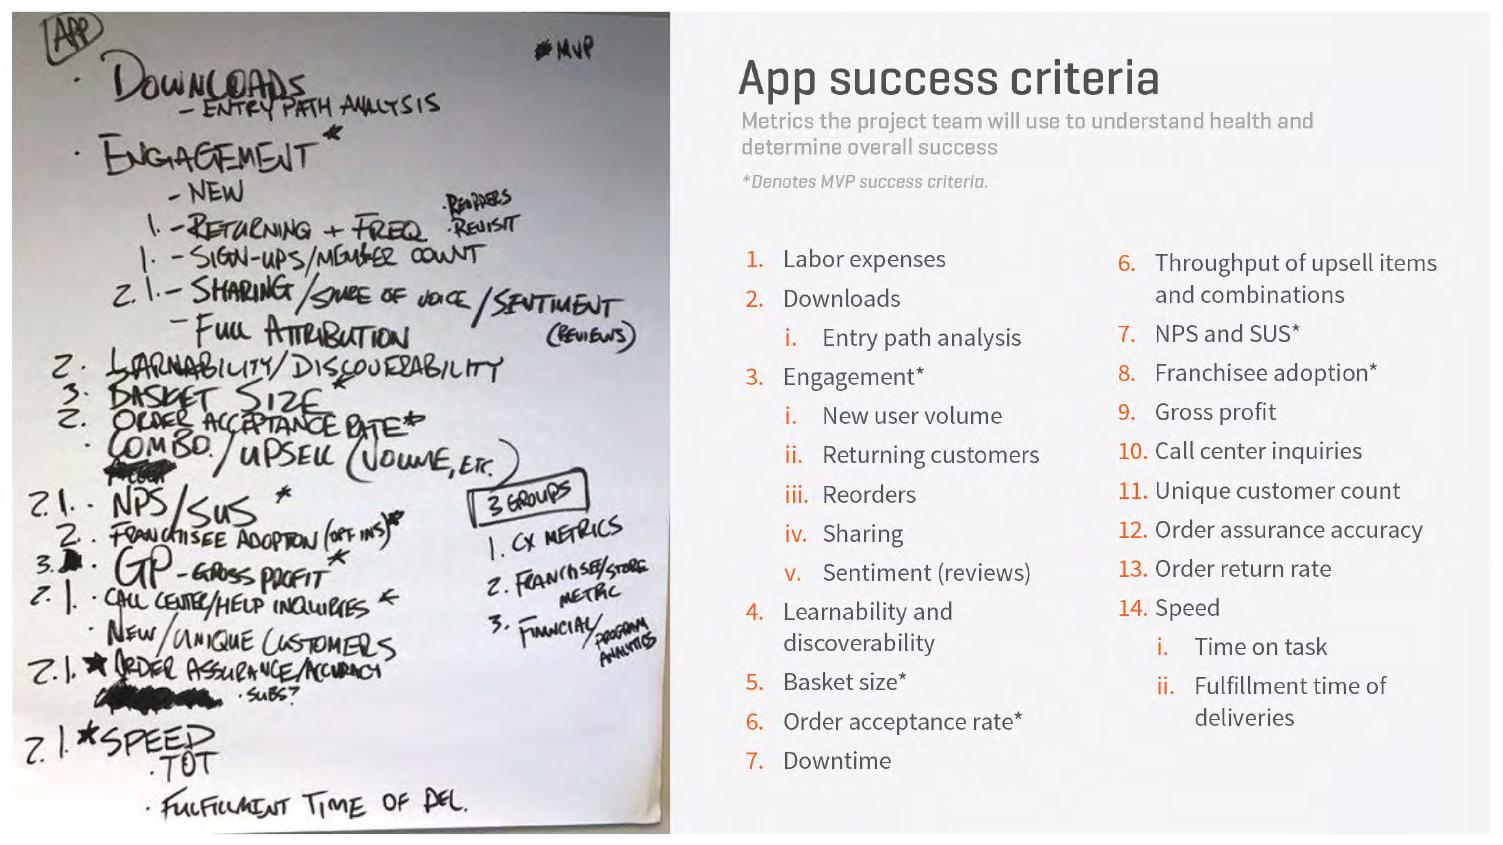 APP
* MVP
· DOWNLOADS
- ENTRY PATH ANALYSIS
· ENGAGEMENT *
- NEW
1. - RETURNING + FREQ
· REORDERS
· REVISIT
1. - SIGN-UPS/MEMBER COUNT
2. 1. - SHARING/SHARE OF VOICE/SENTIMENT
(REVIEWS)
- FULL ATTRIBUTION
2. LARNABILITY/DISCOVERABILITY
3. BASKET SIZE *
2. ORDER ACCEPTANCE RATE *
· COMBO. / UPSELL (VOLUME, ETC.)
2. 1. · NPS/SUS *
2. · FRANCHISEE ADOPTION (OPT INS) *
3. · GP - GROSS PROFIT *
2. 1. · CALL CENTER/HELP INQUIRIES *
· NEW/UNIQUE CUSTOMERS
2. 1. * ORDER ASSURANCE/ACCURACY
· SUBS?
2. 1. * SPEED
· TOT
· FULFILLMENT TIME OF DEL.
3 GROUPS
1. CX METRICS
2. FRANCHISEE/STORE
METRIC
3. FINANCIAL/PROGRAM
ANALYTICS
App success criteria
Metrics the project team will use to understand health and
determine overall success
*Denotes MVP success criteria.
1. Labor expenses
2. Downloads
i. Entry path analysis
3. Engagement*
i. New user volume
ii. Returning customers
iii. Reorders
iv. Sharing
v. Sentiment (reviews)
4. Learnability and
discoverability
5. Basket size*
6. Order acceptance rate*
7. Downtime
6. Throughput of upsell items
and combinations
7. NPS and SUS*
8. Franchisee adoption*
9. Gross profit
10. Call center inquiries
11. Unique customer count
12. Order assurance accuracy
13. Order return rate
14. Speed
i. Time on task
ii. Fulfillment time of
deliveries